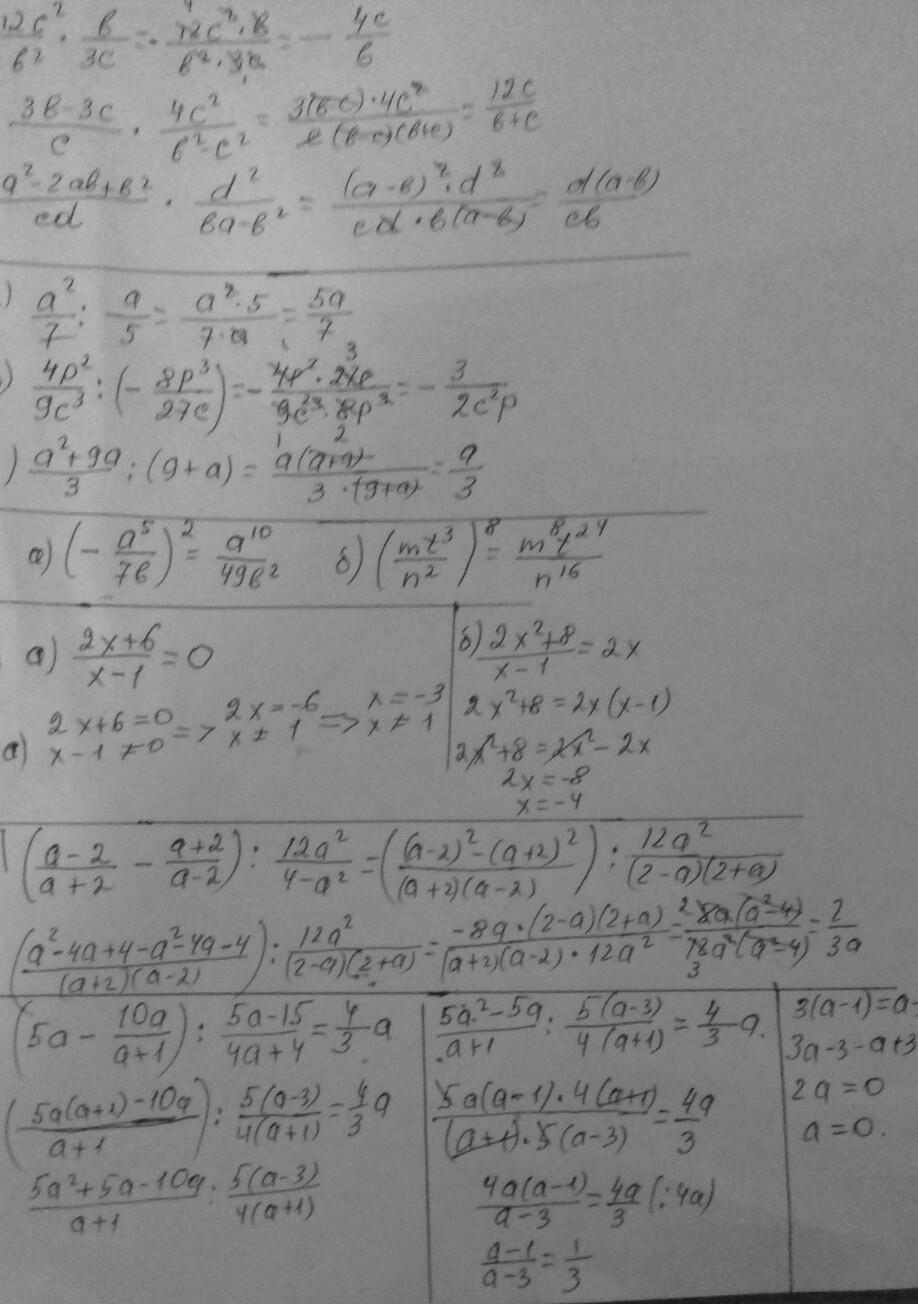 12c²/в² · в/3c = - 12c²·в/в²·3c = - 4c/в
3в-3c/c · 4c²/в²-c² = 3(в-c)·4c²/c(в-c)(в+c) = 12c/в+c
a²-2aв+в²/cd · d²/вa-в² = (a-в)²·d²/cd·в(a-в) = d(a-в)/cв
) a²/7 : a/5 = a²·5/7·a = 5a/7
) 4p²/9c³ : (- 8p³/27c) = - 4p²·27c/9c³·8p³ = - 3/2c²p
) a²+9a/3 : (9+a) = a(a+9)/3·(9+a) = a/3
а) (- a⁵/7в)² = a¹⁰/49в² б) (mt³/n²)⁸ = m⁸t²⁴/n¹⁶
а) 2x+6/x-1 = 0
а) 2x+6=0 => 2x=-6 => x=-3
x-1≠0 x≠1 x≠1
б) 2x²+8/x-1 = 2x
2x²+8 = 2x(x-1)
2x²+8 = 2x²-2x
2x=-8
x=-4
(a-2/a+2 - a+2/a-2) : 12a²/4-a² = ((a-2)²-(a+2)²/(a+2)(a-2)) : 12a²/(2-a)(2+a)
(a²-4a+4-a²-4a-4/(a+2)(a-2)) : 12a²/(2-a)(2+a) = -8a·(2-a)(2+a)/(a+2)(a-2)·12a² = 8a(a²-4)/12a²(a²-4) = 2/3a
(5a - 10a/a+1) : 5a-15/4a+4 = 4/3 a
(5a(a+1)-10a/a+1) : 5(a-3)/4(a+1) = 4/3 a
5a²+5a-10a/a+1 : 5(a-3)/4(a+1)
5a²-5a/a+1 : 5(a-3)/4(a+1) = 4/3 a.
5a(a-1)·4(a+1)/(a+1)·5(a-3) = 4a/3
4a(a-1)/a-3 = 4a/3 (:4a)
a-1/a-3 = 1/3
3(a-1)=a-
3a-3-a+3
2a=0
a=0.